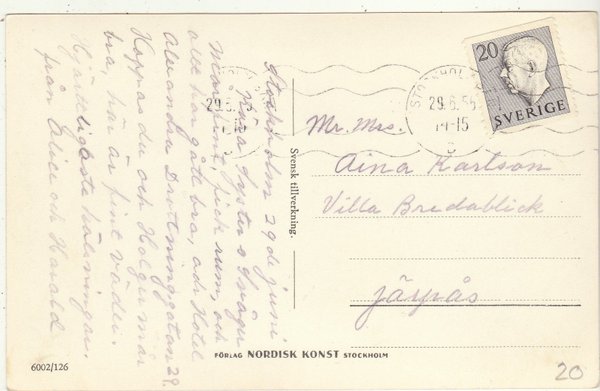 Stockholm 29 de juni
Kära Syster o Svåger
fick rum, och
allt har gått bra, ads Hotel
Alexandra Drottninggatan 29.
Hoppas du och Holger mår
bra, här är fint väder.
Hjärtligaste hälsningar.
från Elice och Harald
Svensk tillverkning.
20
SVERIGE
STOCKHOLM
29.6.56
14-15
29.6.56
14-15
Mr. Mrs.
Aina Karlson
Villa Bredablick
Järpås
6002/126
FÖRLAG NORDISK KONST STOCKHOLM
20